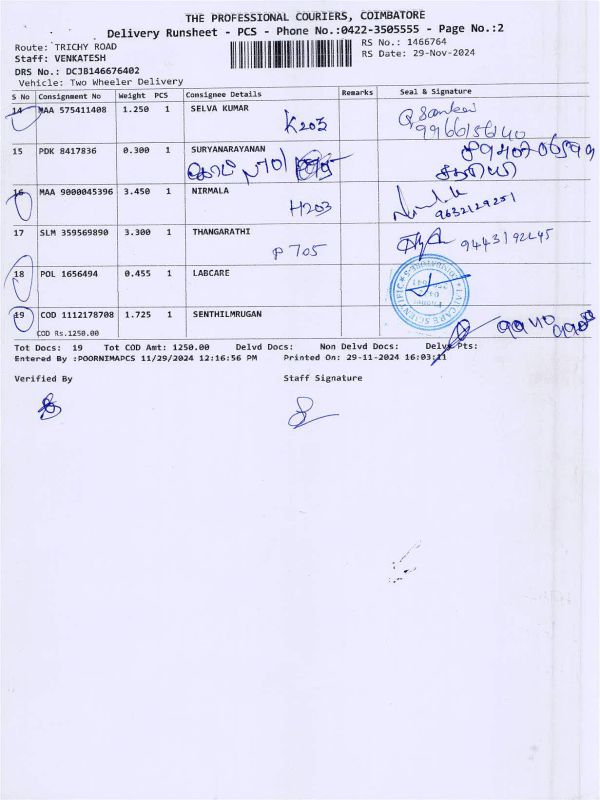 THE PROFESSIONAL COURIERS, COIMBATORE
Delivery Runsheet - PCS - Phone No.:0422-3505555 - Page No.:2
Route: TRICHY ROAD
RS No.: 1466764
Staff: VENKATESH
RS Date: 29-Nov-2024
DRS No.: DCJB146676402
Vehicle: Two Wheeler Delivery
S No Consignment No Weight PCS Consignee Details Remarks Seal & Signature
14 MAA 575411408 1.250 1 SELVA KUMAR
K203
15 PDK 8417836 0.300 1 SURYANARAYANAN
N701
16 MAA 9000045396 3.450 1 NIRMALA
H203 9632129251
17 SLM 359569890 3.300 1 THANGARATHI
P 705 9443192245
18 POL 1656494 0.455 1 LABCARE
19 COD 1112178708 1.725 1 SENTHILMRUGAN
COD Rs.1250.00
Tot Docs: 19 Tot COD Amt: 1250.00 Delvd Docs: Non Delvd Docs: Delvd Pts:
Entered By :POORNIMAPCS 11/29/2024 12:16:56 PM Printed On: 29-11-2024 16:03:11
Verified By Staff Signature